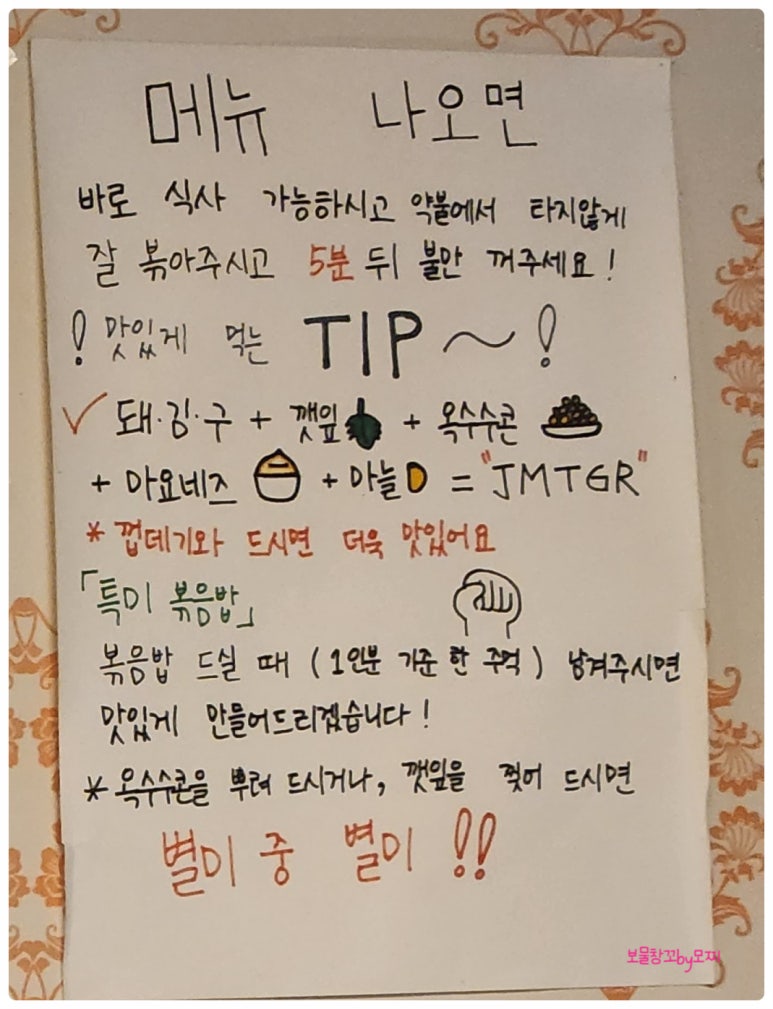 메뉴 나오면
바로 식사 가능하시고 약불에서 타지않게
잘 볶아주시고 5분 뒤 불만 꺼주세요!
! 맛있게 먹는 TIP~!
✓ 돼·김·구 + 깻잎 + 옥수수콘
+ 마요네즈 + 마늘 = "JMTGR"
* 껍데기와 드시면 더욱 맛있어요
「특미 볶음밥」
볶음밥 드실 때 (1인분 기준 한 주먹) 남겨주시면
맛있게 만들어드리겠습니다!
* 옥수수콘을 뿌려 드시거나, 깻잎을 찢어 드시면
별미 중 별미!!
보물창꼬by모찌